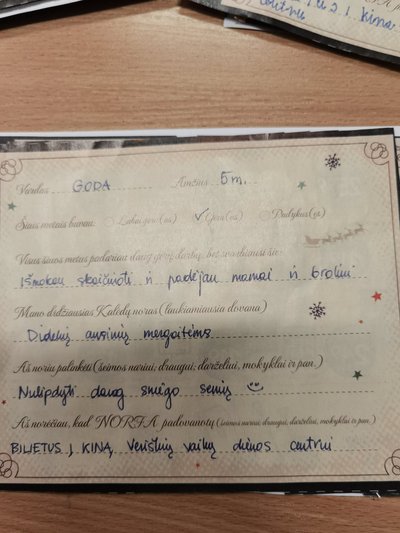 Į KINĄ
centrui
Vardas GODA Amžius 5 m.
Šiais metais buvau: Labai geras (-a) ✓ Geras (-a) Padykęs (-us)
Visus šiuos metus padariau daug gerų darbų, bet svarbiausi šie:
Išmokau skaičiuoti ir padėjau mamai ir broliui
Mano didžiausias Kalėdų noras (laukiamiausia dovana)
Didelių ausinių mergaitėms
Aš noriu palinkėti (šeimos nariui, draugui, darželiui, mokyklai ir pan.)
Nulipdyti daug sniego senių
Aš norėčiau, kad NORFA padovanotų (šeimos nariui, draugui, darželiui, mokyklai ir pan.)
BILIETUS Į KINĄ, Veriškių vaikų dienos centrui